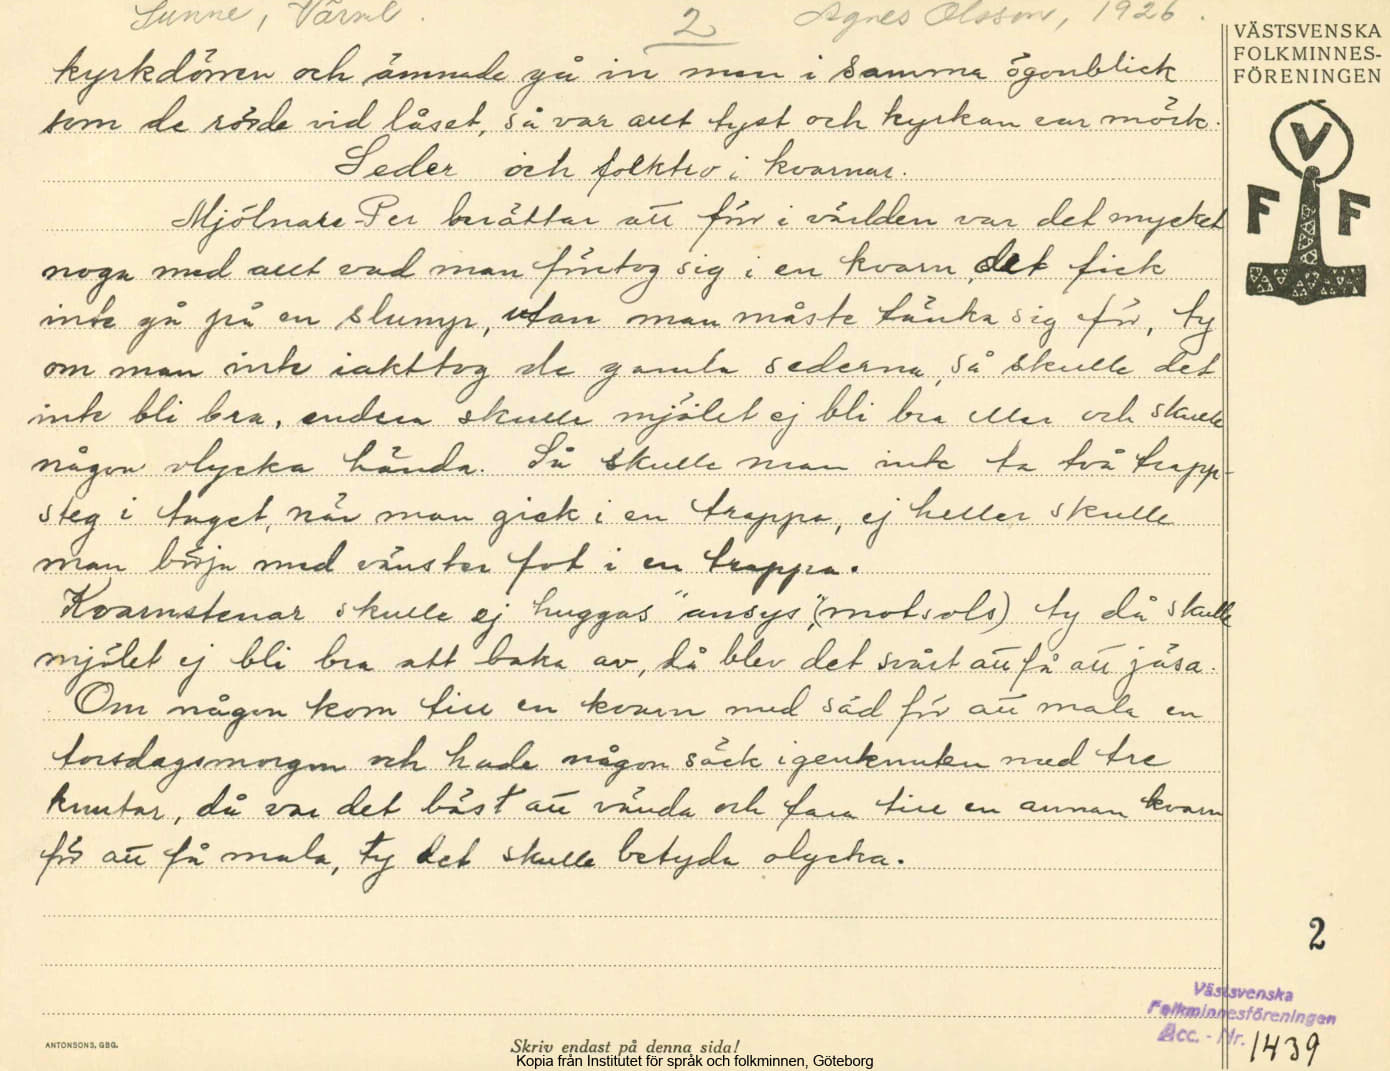 Sunne, Värml.
2
Agnes Olsson, 1926.
VÄSTSVENSKA
FOLKMINNES-
FÖRENINGEN
V
F F
kyrkdörren och ämnade gå in men i samma ögonblick
som de rörde vid låset, så var allt tyst och kyrkan var mörk.
Seder och folktro i kvarnar.
Mjölnare-Per berättar att förr i världen var det mycket
noga med allt vad man företog sig i en kvarn, det fick
inte gå på en slump, utan man måste tänka sig för, ty
om man inte iakttog de gamla sederna, så skulle det
inte bli bra, endera skulle mjölet ej bli bra eller och skulle
någon olycka hända. Så skulle man inte ta två trapp-
steg i taget, när man gick i en trappa, ej heller skulle
man börja med vänster fot i en trappa.
Kvarnstenar skulle ej huggas "ansys", (motsols) ty då skulle
mjölet ej bli bra att baka av, då blev det svårt att få att jäsa.
Om någon kom till en kvarn med säd för att mala en
torsdagsmorgon och hade någon säck igenknuten med tre
knutar, då var det bäst att vända och fara till en annan kvarn
för att få mala, ty det skulle betyda olycka.
2
Västsvenska
Folkminnesföreningen
Acc. - Nr. 1439
ANTONSONS, GBG.
Skriv endast på denna sida!
Kopia från Institutet för språk och folkminnen, Göteborg